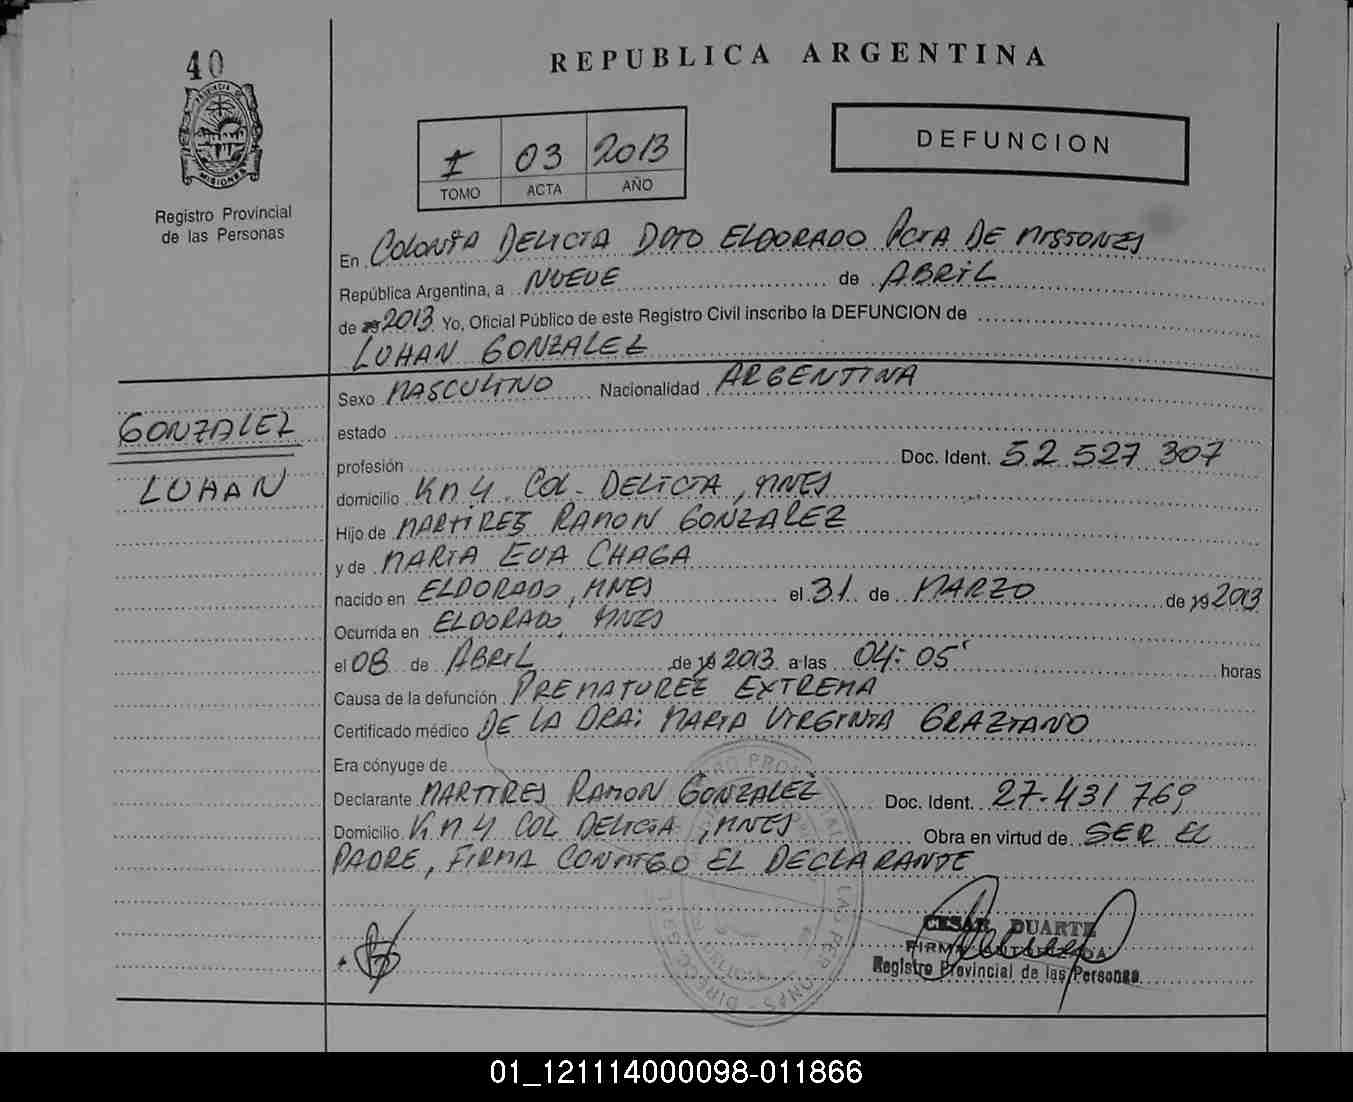 40
REPUBLICA ARGENTINA
PROVINCIA DE
MISIONES
Registro Provincial
de las Personas
I 03 2013
TOMO ACTA AÑO
DEFUNCION
En COLONIA DELICIA DPTO ELDORADO PCIA DE MISIONES
República Argentina, a NUEVE de ABRIL
de 2013 Yo, Oficial Público de este Registro Civil inscribo la DEFUNCION de
LUHAN GONZALEZ
GONZALEZ
LUHAN
Sexo MASCULINO Nacionalidad ARGENTINA
estado
profesión Doc. Ident. 52 527 307
domicilio KM 4. COL. DELICIA, MNES
Hijo de MARTIRES RAMON GONZALEZ
y de MARIA EVA CHAGA
nacido en ELDORADO, MNES el 31 de MARZO de 19 2013
Ocurrida en ELDORADO, MNES
el 08 de ABRIL de 19 2013 a las 04:05 horas
Causa de la defunción PREMATUREZ EXTREMA
Certificado médico DE LA DRA: MARIA VIRGINIA GRAZIANO
Era cónyuge de
Declarante MARTIRES RAMON GONZALEZ Doc. Ident. 27.431 769
Domicilio KM 4 COL DELICIA, MNES Obra en virtud de SER EL
PADRE, FIRMA CONMIGO EL DECLARANTE
CESAR DUARTE
FIRMA AUTORIZADA
Registro Provincial de las Personas
01_121114000098-011866